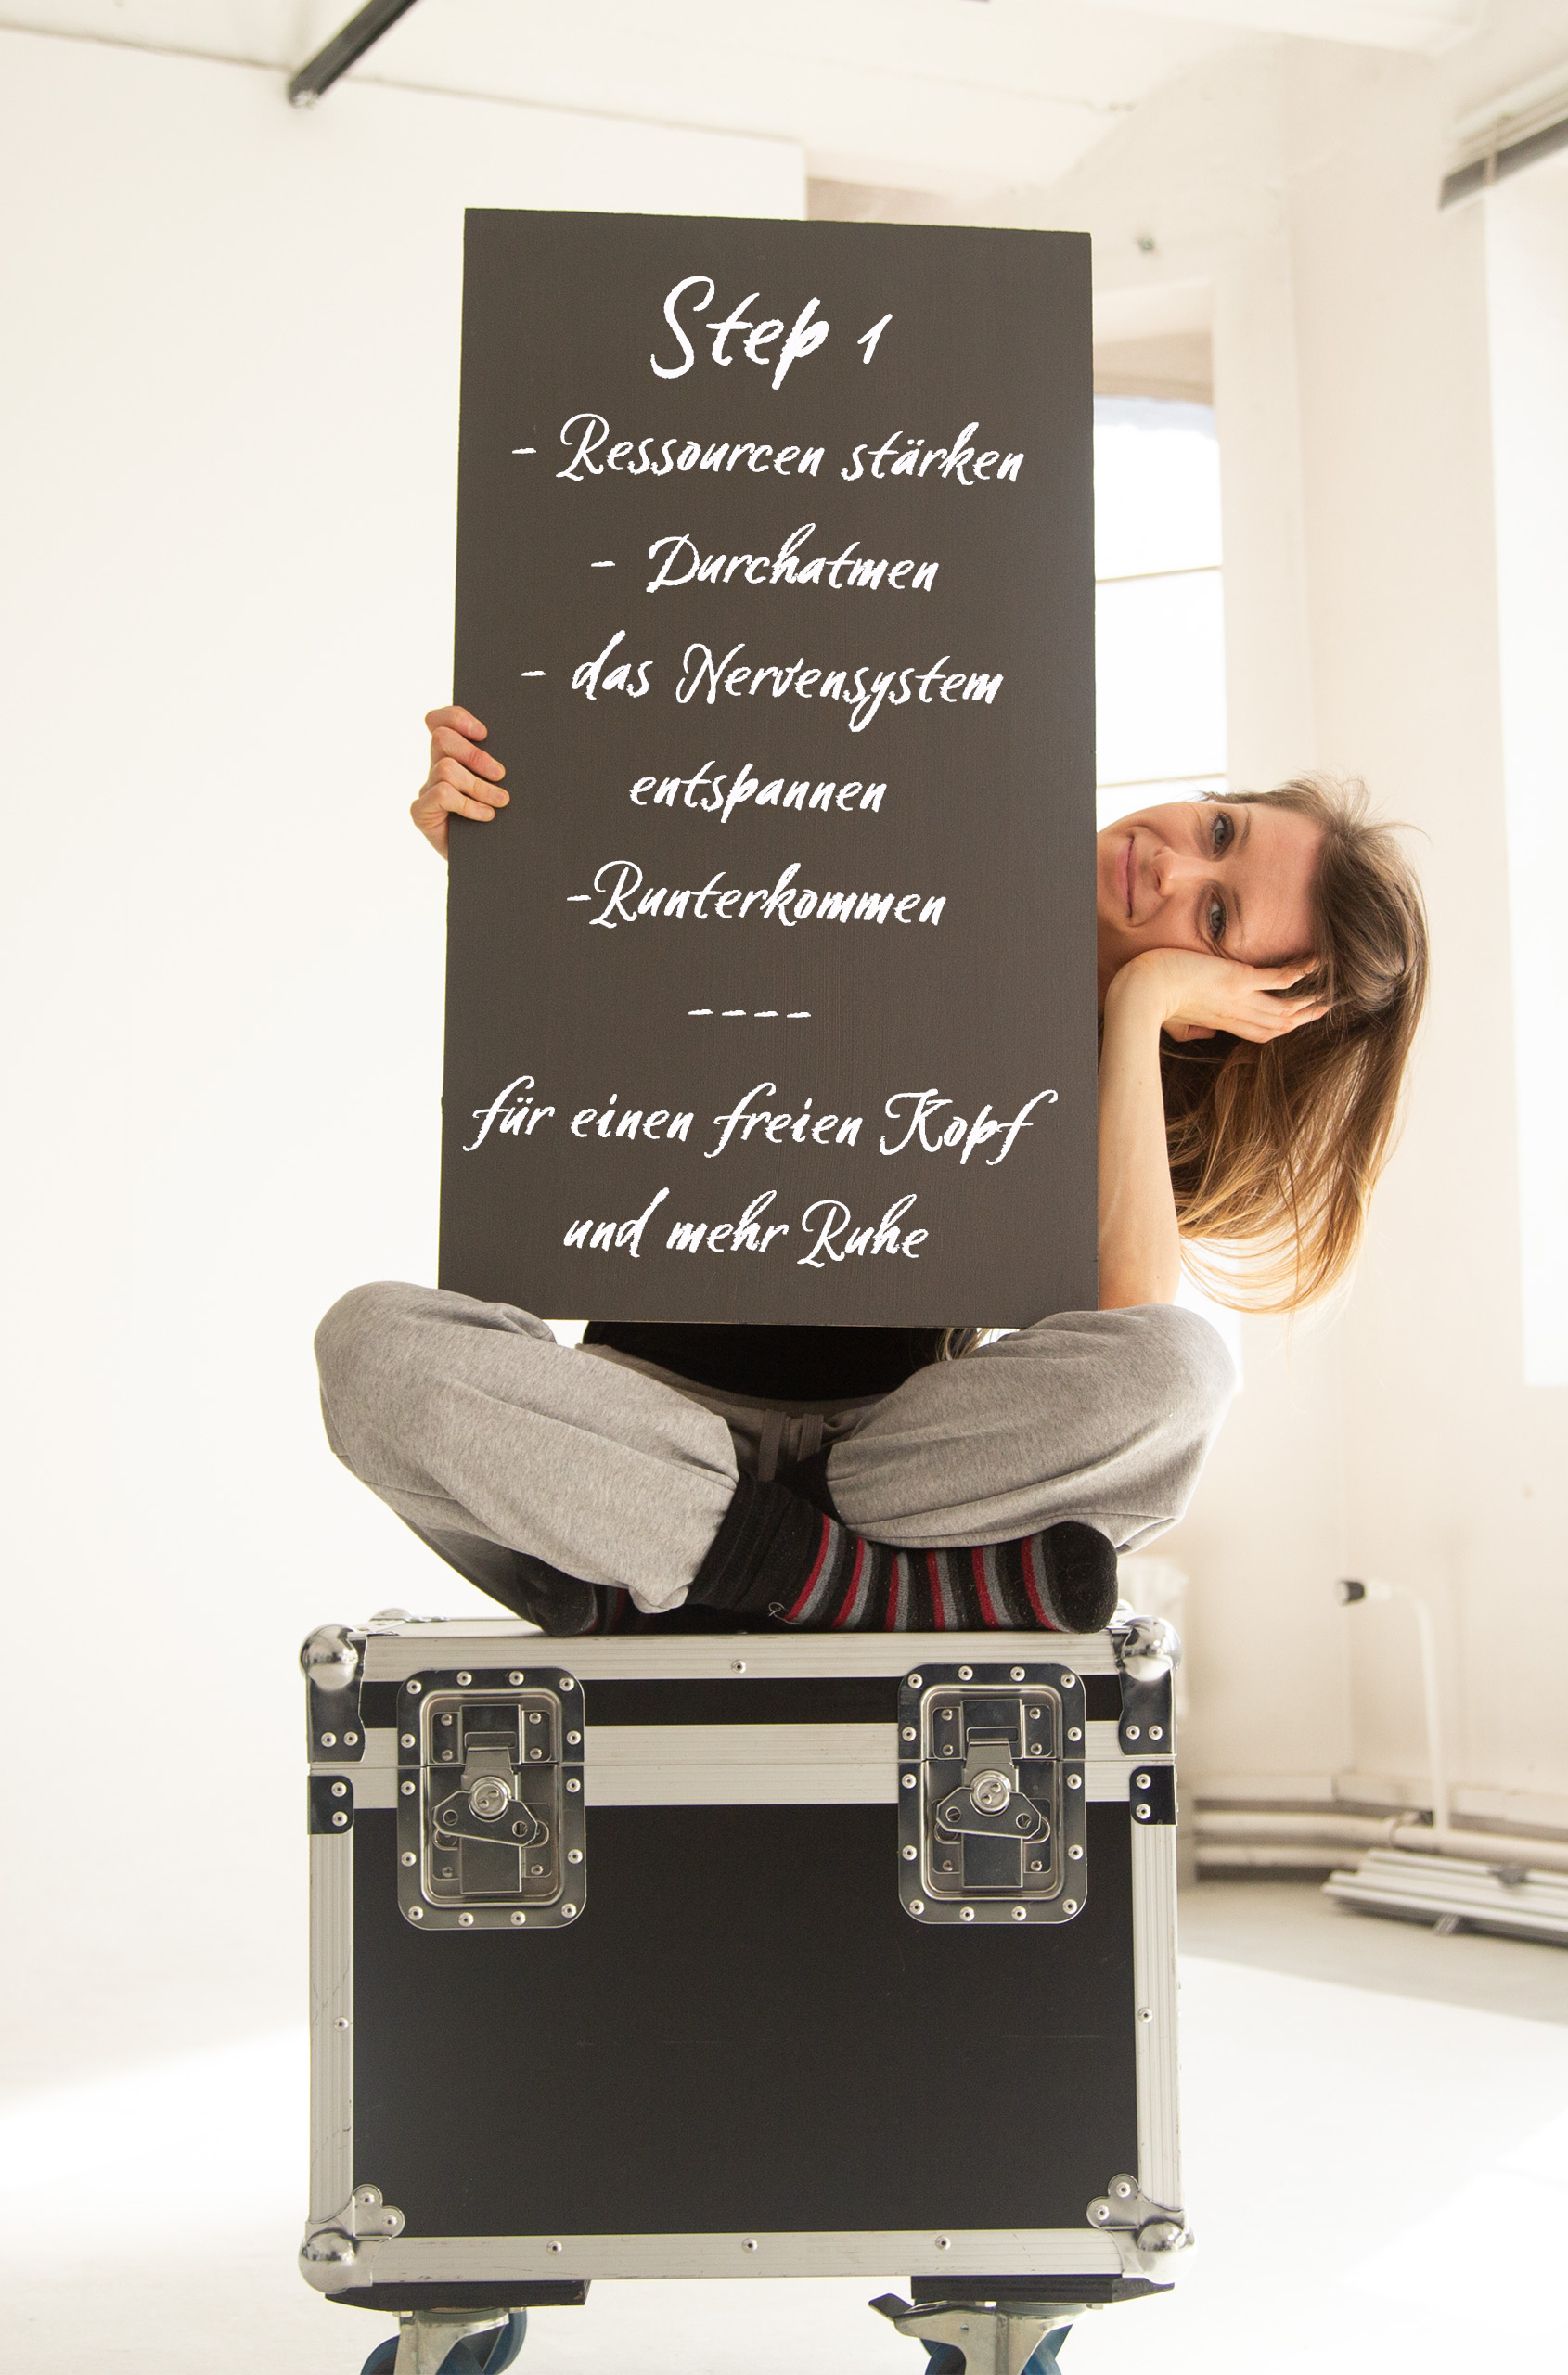 Step 1
- Ressourcen stärken
- Durchatmen
- das Nervensystem
entspannen
-Runterkommen
----
für einen freien Kopf
und mehr Ruhe